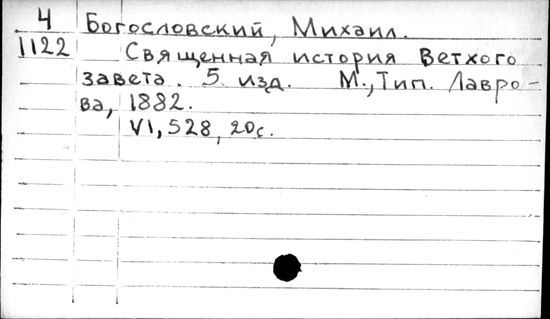 4 Богословский, Михаил.
1122 Священная история Ветхого
завета. 5. изд. М., Тип. Лавро-
ва, 1882.
VI, 528, 20с.